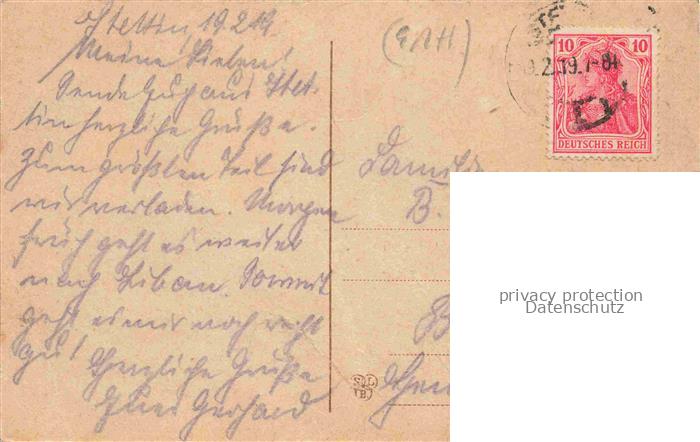 Stettin, 19.2.19.
Meine Lieben!
Sende Euch aus Stet-
tin herzliche Grüße.
Zum größten Teil sind
wir verladen. Morgen
früh geht es weiter
nach Libau. Soweit
geht es mir noch recht
gut!
Herzliche Grüße
Euer Gerhard
Familie
B.
10 10
DEUTSCHES REICH
.2.19.7-8
S L
B
privacy protection
Datenschutz